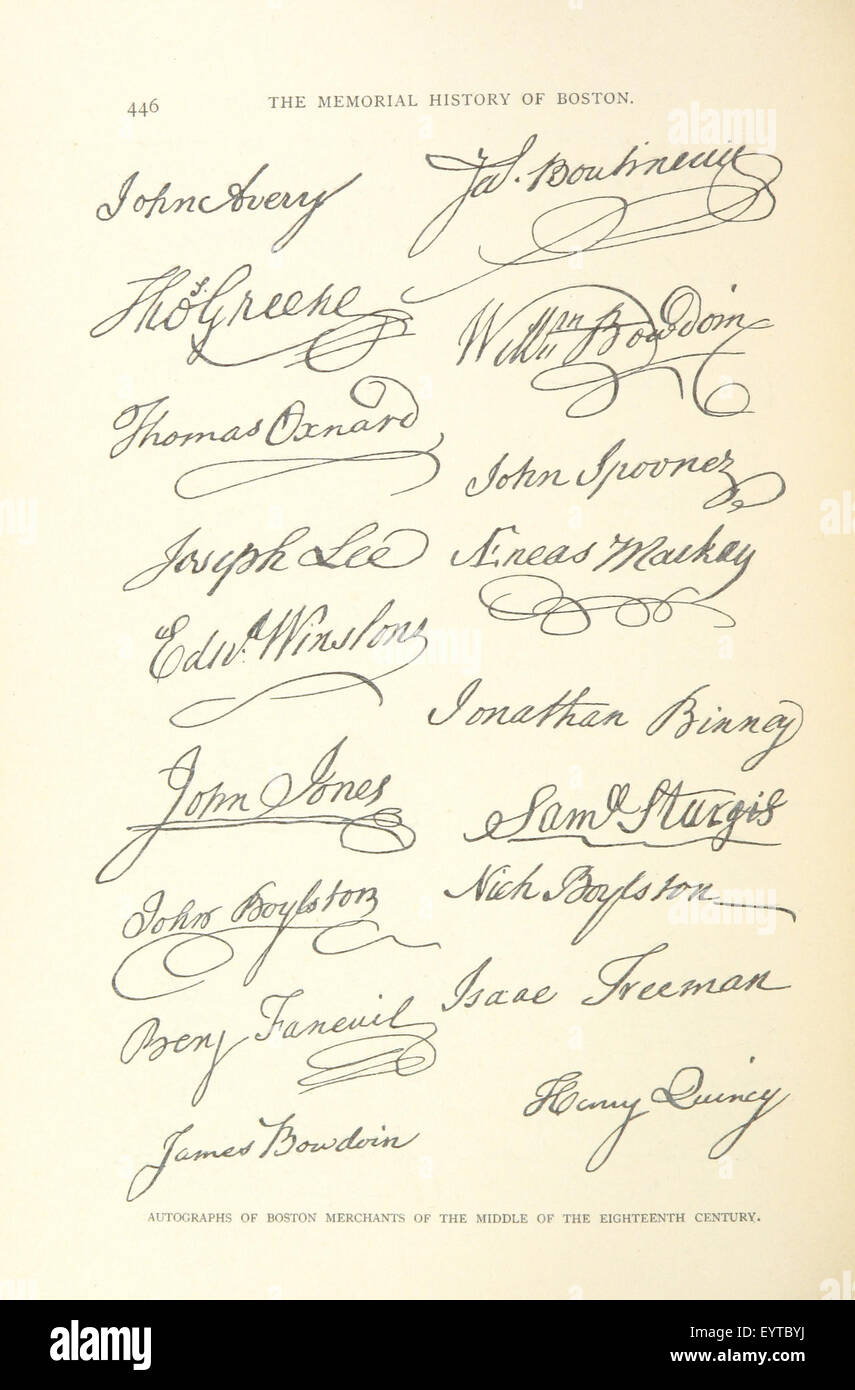 446
THE MEMORIAL HISTORY OF BOSTON.
John Avery
Jas. Boutineau
Thos. Greene
Willm Bowdoin
Thomas Oxnard
John Spooner
Joseph Lee
Æneas Mackay
Edwd. Winslow
Jonathan Binney
John Jones
Saml Sturgis
John Boylston
Nich Boylston
Benj Faneuil
Isaac Freeman
Henry Quincy
James Bowdoin
AUTOGRAPHS OF BOSTON MERCHANTS OF THE MIDDLE OF THE EIGHTEENTH CENTURY.
alamy
alamy stock photo
EYTBYJ
www.alamy.com